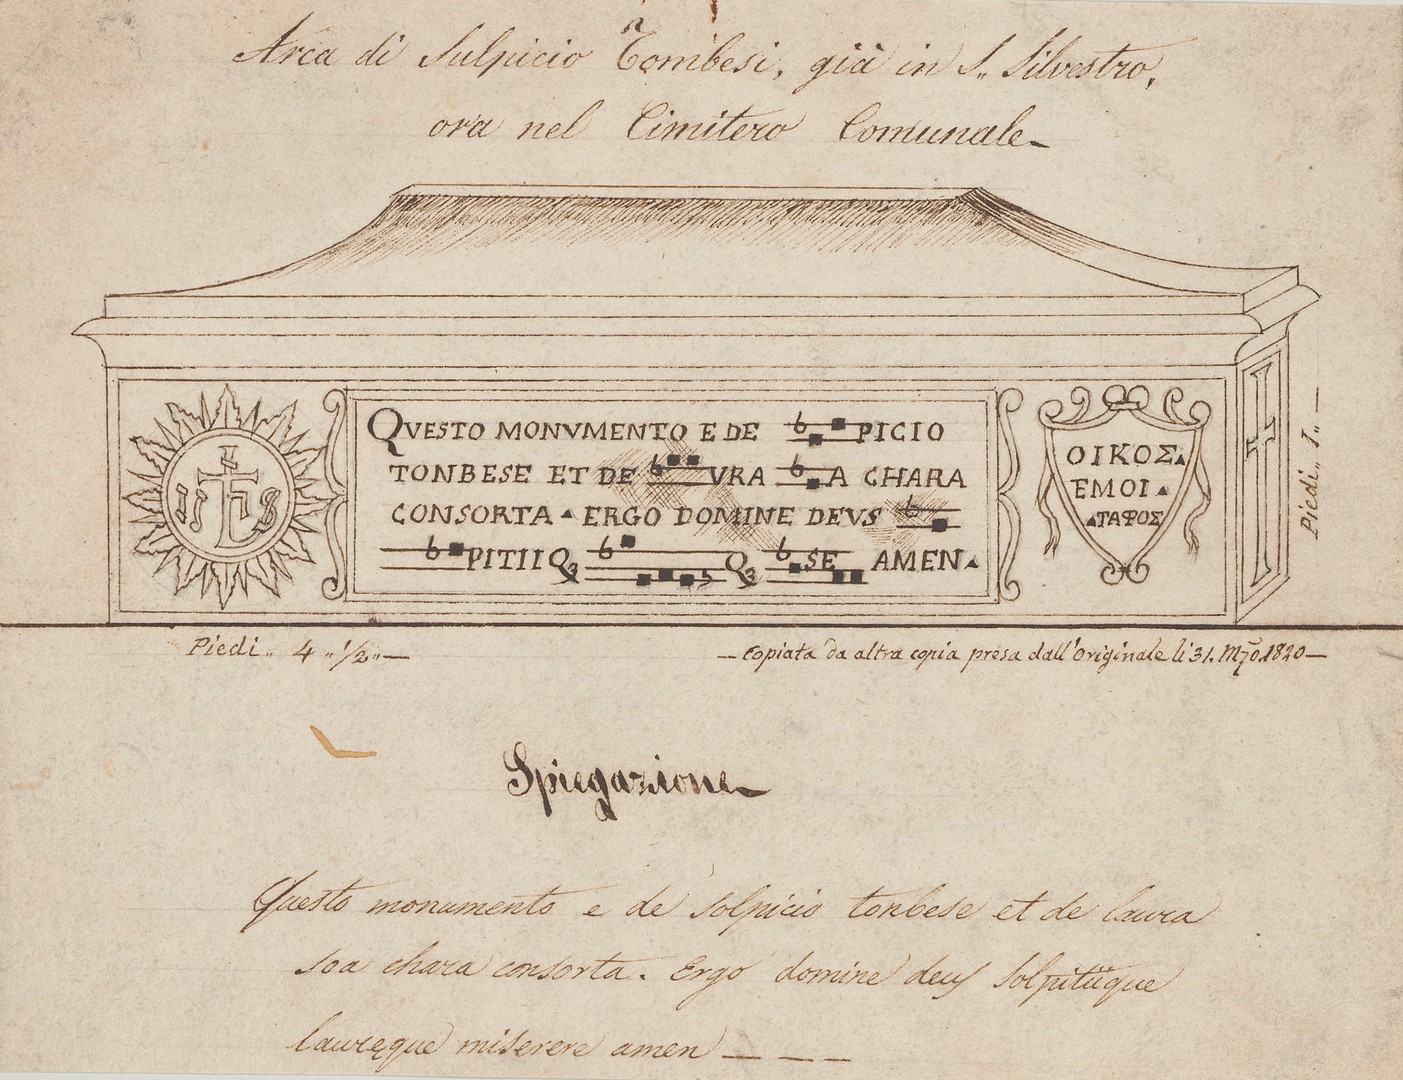 Arca di Sulpicio Tombesi, già in S. Silvestro,
ora nel Cimitero Comunale
QVESTO MONVMENTO E DE PICIO
TONBESE ET DE VRA A CHARA
CONSORTA ERGO DOMINE DEVS
PITII Q3 Q3 SE AMEN
IHS
ΟΙΚΟΣ
ΕΜΟΙ
ΤΑΦΟΣ
Piedi 1
Piedi 4 1/2
Copiata da altra copia presa dall'Originale li 31. Mzo. 1820
Spiegazione
Questo monumento e de solpicio tonbese et de laura
soa chara consorta. Ergo domine deus Solpitiique
laureque miserere amen